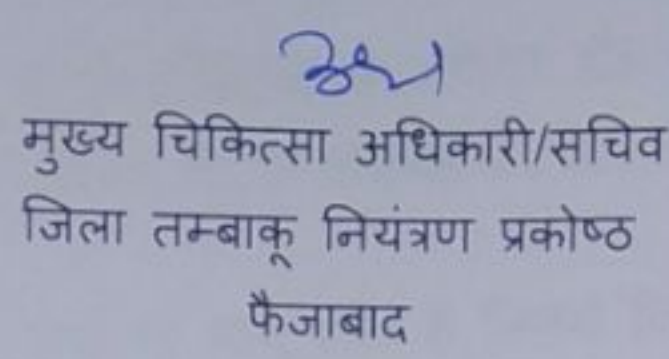 मुख्य चिकित्सा अधिकारी/सचिव
जिला तम्बाकू नियंत्रण प्रकोष्ठ
फैजाबाद